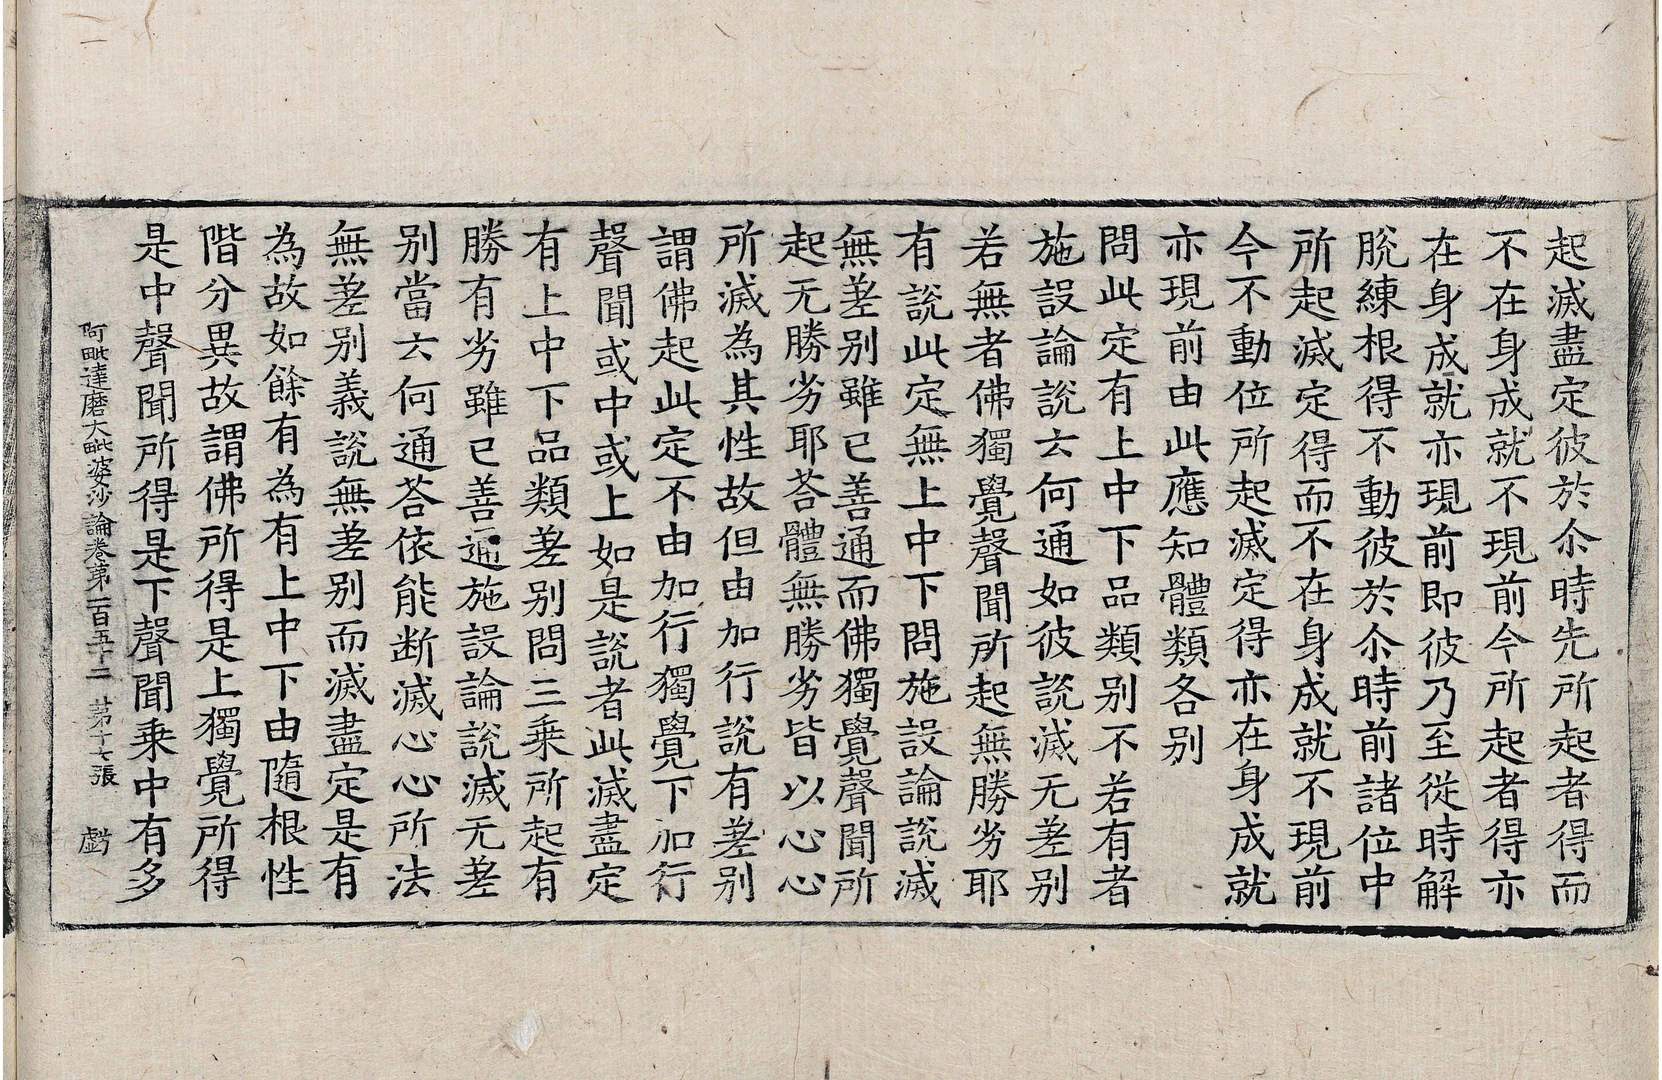 起滅盡定彼於尒時先所起者得而
不在身成就不現前今所起者得亦
在身成就亦現前即彼乃至從時解
脫練根得不動彼於尒時前諸位中
所起滅定得而不在身成就不現前
今不動位所起滅定得亦在身成就
亦現前由此應知體類各別
問此定有上中下品類別不若有者
施設論說云何通如彼說滅无差別
若無者佛獨覺聲聞所起無勝劣耶
有說此定無上中下問施設論說滅
無差別雖已善通而佛獨覺聲聞所
起无勝劣耶荅體無勝劣皆以心心
所滅為其性故但由加行說有差別
謂佛起此定不由加行獨覺下加行
聲聞或中或上如是說者此滅盡定
有上中下品類差別問三乗所起有
勝有劣雖已善通施設論說滅无差
別當云何通荅依能断滅心心所法
無差別義說無差別而滅盡定是有
為故如餘有為有上中下由隨根性
階分異故謂佛所得是上獨覺所得
是中聲聞所得是下聲聞乗中有多
阿毗達磨大毗婆沙論卷第一百五十二 第十七張 戱